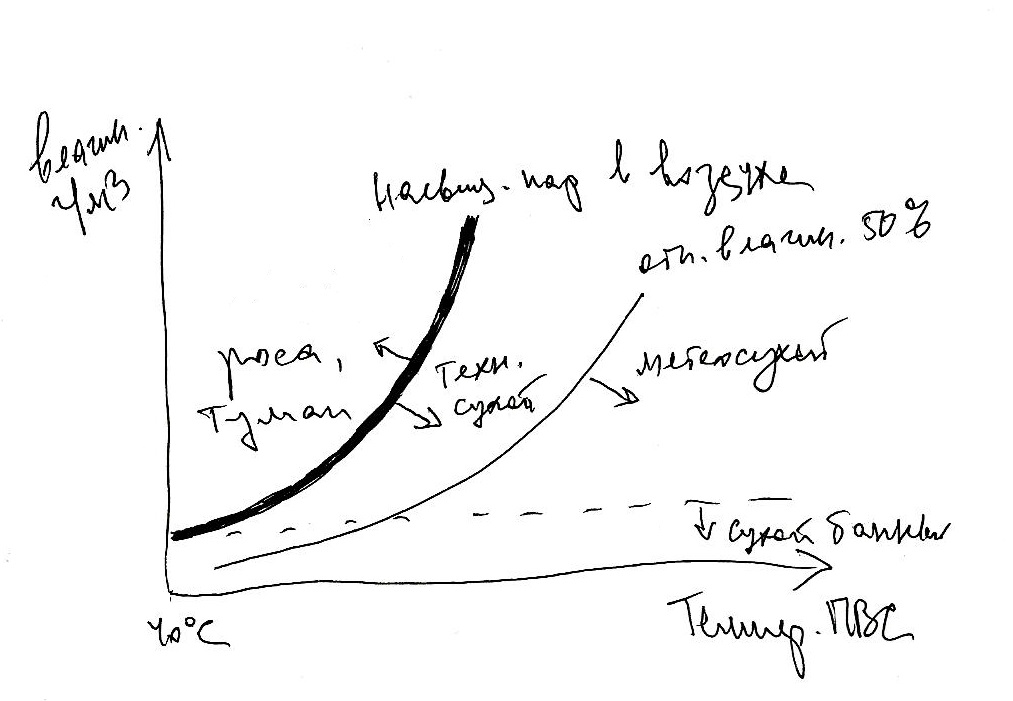 влажн.
г/м3
Насыщ. пар в воздухе
отн. влажн. 50%
роса,
туман
Техн.
сухой
метеосухой
сухой банный
Темпер. ПВС
40°C